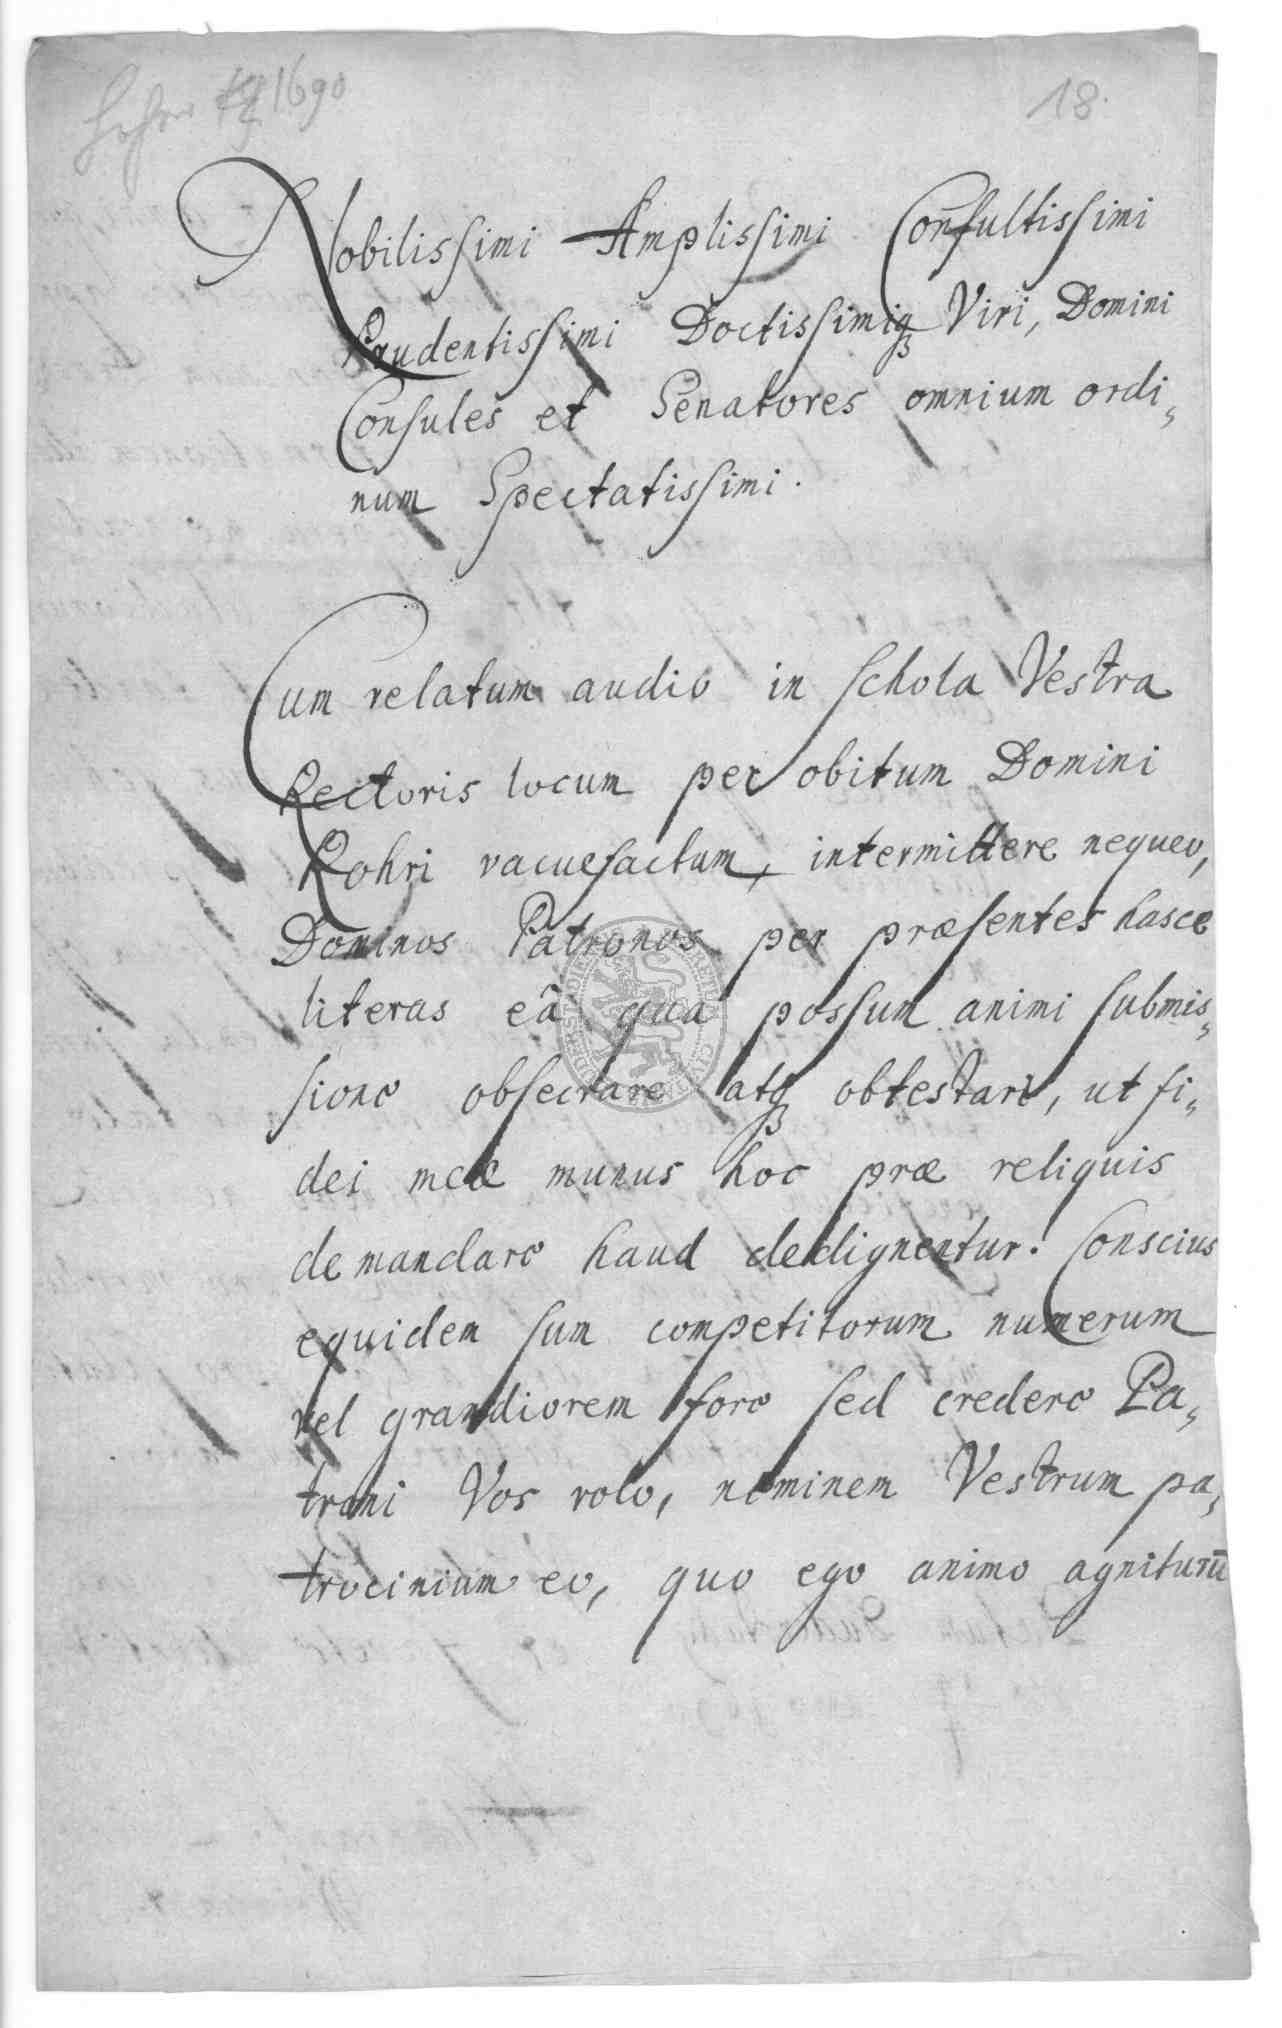 1690
18.
Nobilissimi Amplissimi Consultissimi
Prudentissimi Doctissimiq Viri, Domini
Consules et Senatores omnium ordi„
num Spectatissimi.
Cum relatum audio in schola Vestra
Rectoris locum per obitum Domini
Rohri vacuefactum, intermittere nequeo,
Dominos Patronos per præsentes hasce
literas eâ qua possum animi submis„
sione obsecrare atq obtestari, ut fi„
dei meæ munus hoc præ reliquis
demandare haud dedignentur. Conscius
equidem sum competitorum numerum
vel grandiorem fore sed credere Pa„
troni Vos volo, neminem Vestrum pa„
trocinium eo, quo ego animo agniturū